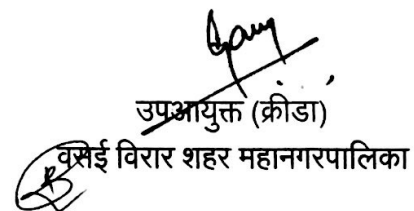 उपआयुक्त (क्रीडा)
वसई विरार शहर महानगरपालिका